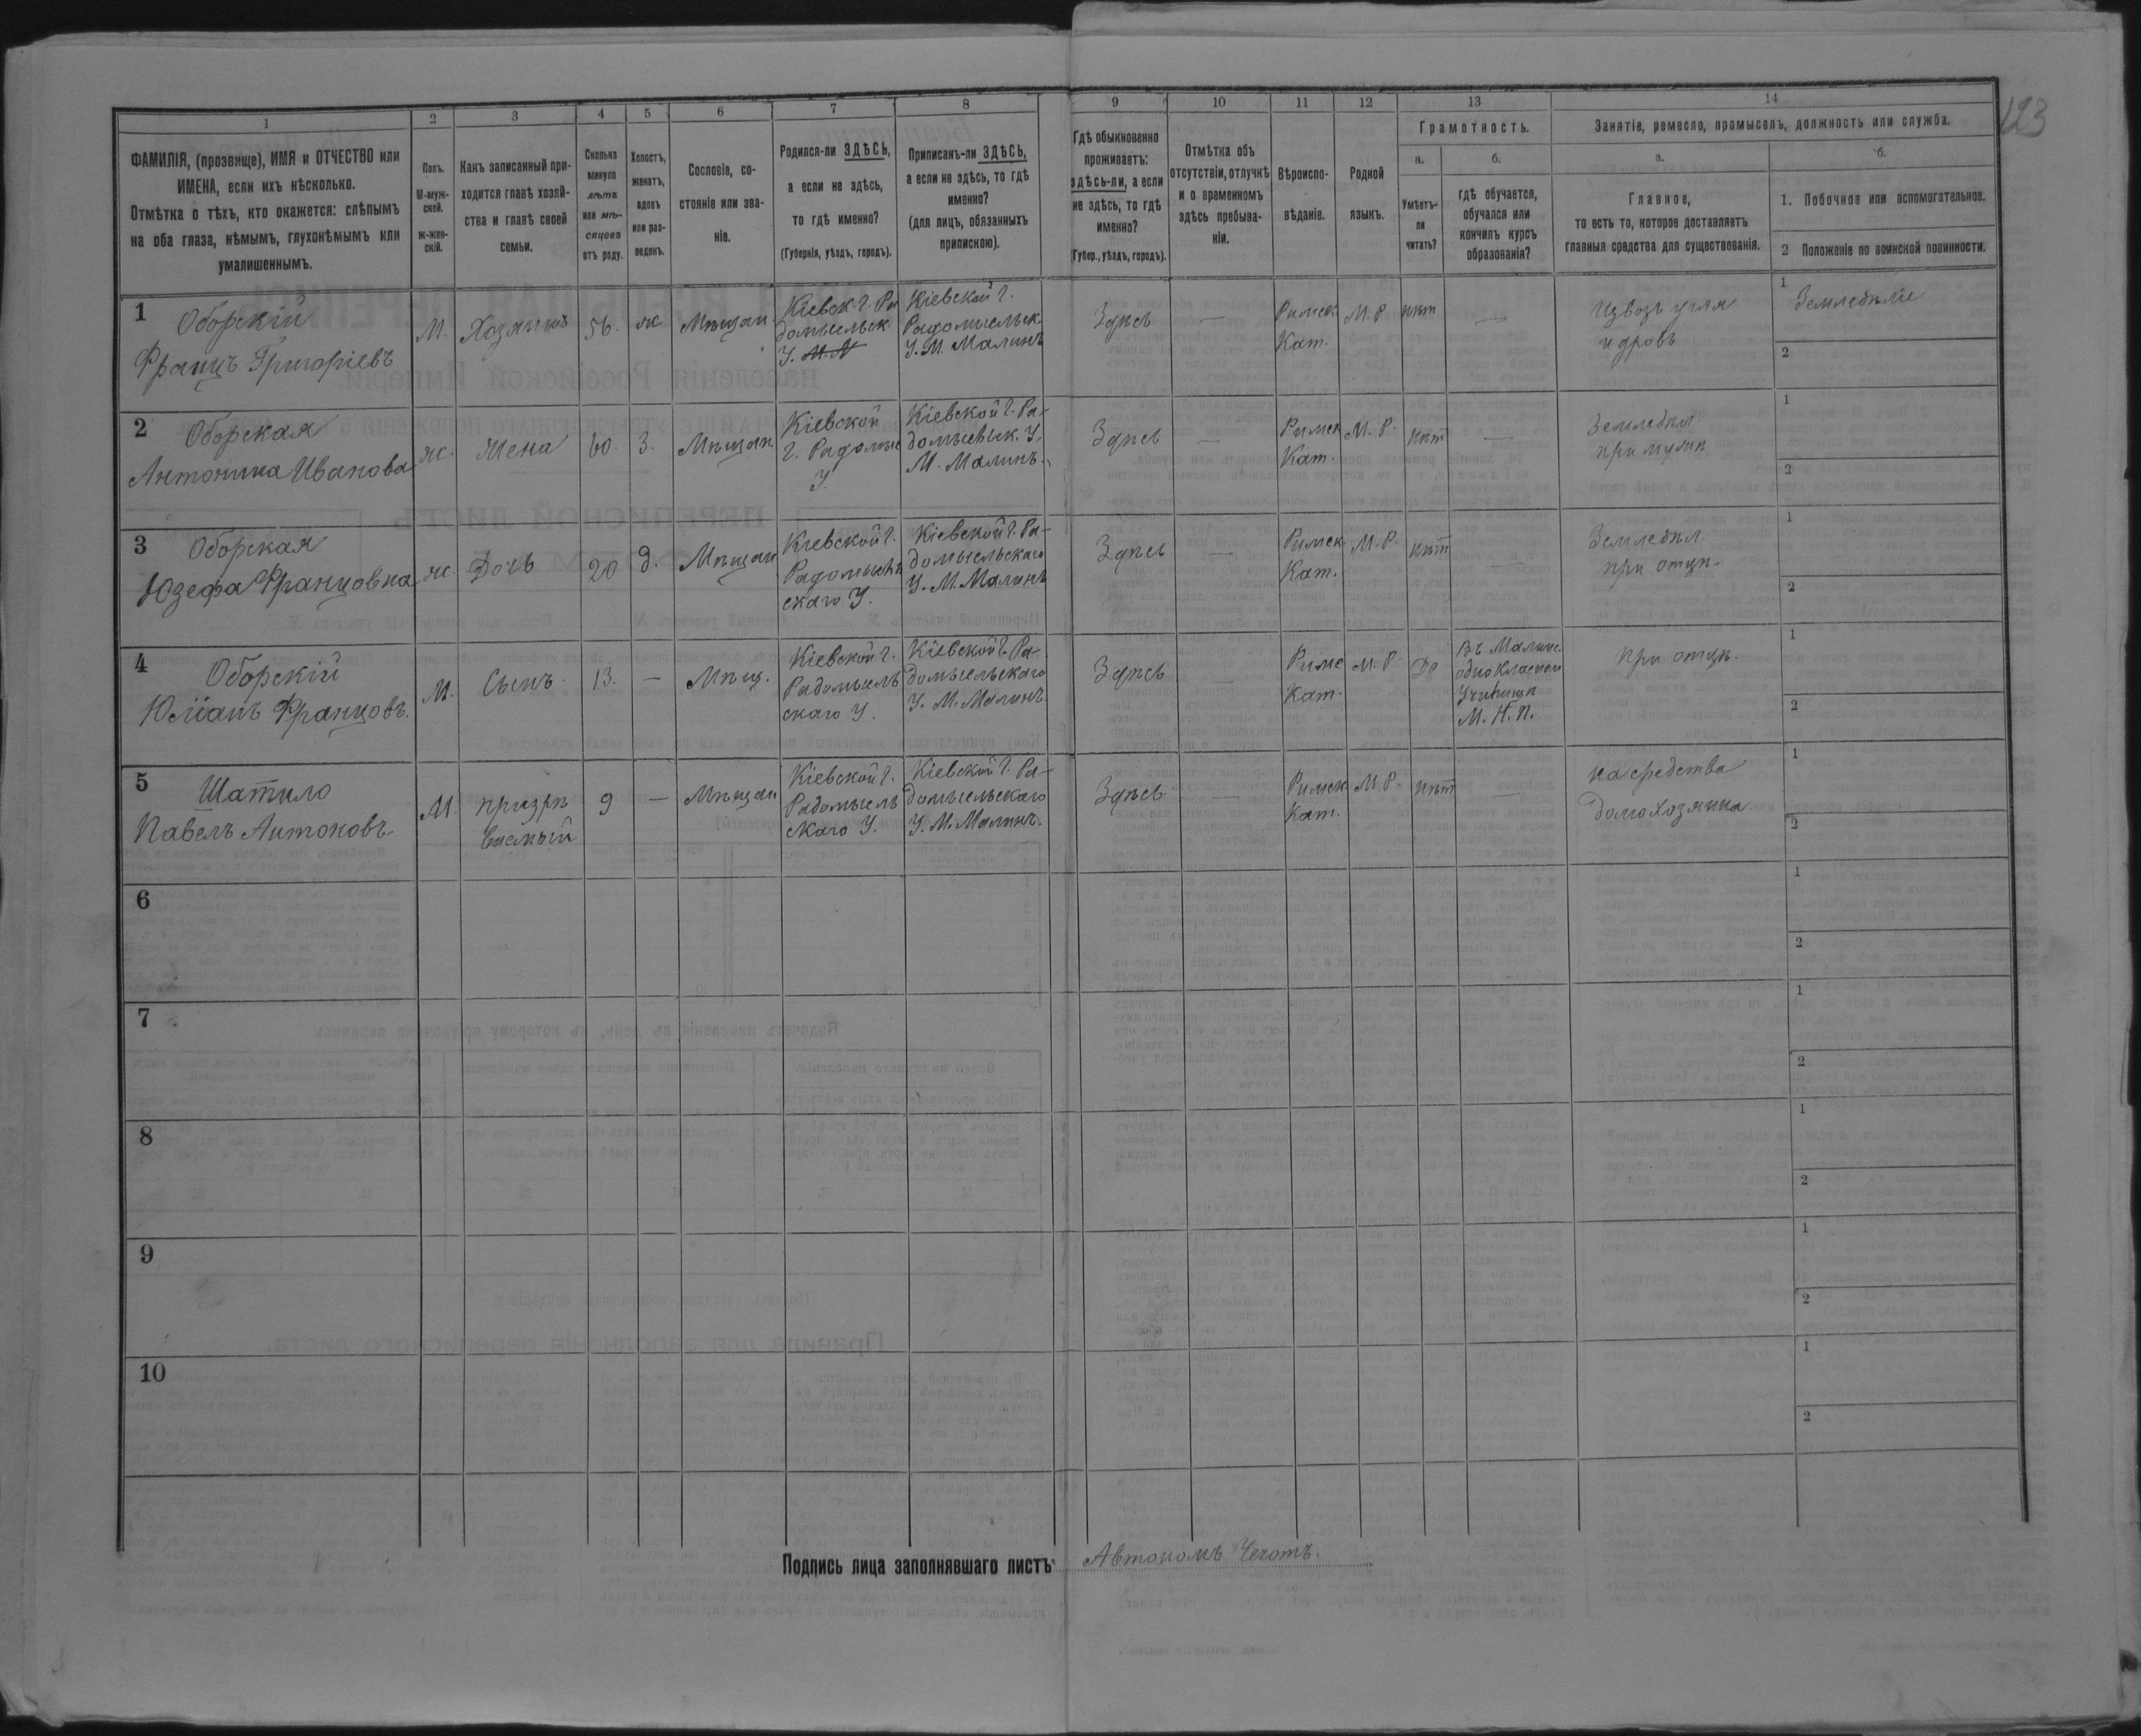 123
1 2 3 4 5 6 7 8 9 10 11 12 13 14
ФАМИЛІЯ, (прозвище), ИМЯ и ОТЧЕСТВО или
ИМЕНА, если ихъ нѣсколько.
Отмѣтка о тѣхъ, кто окажется: слѣпымъ
на оба глаза, нѣмымъ, глухонѣмымъ или
умалишеннымъ.
Полъ.
М-муж-
ской.
Ж-жен-
скій.
Какъ записанный при-
ходится главѣ хозяй-
ства и главѣ своей
семьи.
Сколько
минуло
лѣтъ
или мѣ-
сяцевъ
отъ роду.
Холостъ,
женатъ,
вдовъ
или раз-
веденъ.
Сословіе, со-
стояніе или зва-
ніе.
Родился-ли ЗДѢСЬ,
а если не здѣсь,
то гдѣ именно?
(Губернія, уѣздъ, городъ).
Приписанъ-ли ЗДѢСЬ,
а если не здѣсь, то гдѣ
именно?
(для лицъ, обязанныхъ
припискою).
Гдѣ обыкновенно
проживаетъ:
здѣсь-ли, а если
не здѣсь, то гдѣ
именно?
(Губер., уѣздъ, городъ).
Отмѣтка объ
отсутствіи, отлучкѣ
и о временномъ
здѣсь пребыва-
ніи.
Вѣроиспо-
вѣданіе.
Родной
языкъ.
Грамотность.
а.
Умѣетъ-
ли
читать?
б.
гдѣ обучается,
обучался или
кончилъ курсъ
образованія?
Занятіе, ремесло, промыселъ, должность или служба.
а.
Главное,
то есть то, которое доставляетъ
главныя средства для существованія.
б.
1. Побочное или вспомогательное.
2 Положеніе по воинской повинности.
1
Оборскій
Францъ Григоріевъ
М.
Хозяинъ
56.
ж
Мѣщан.
Кіевск. г. Ра
домысльск
У. М. М
Кіевской г.
Радомысльск.
У. М. Малинъ
Здѣсь
—
Римск
Кат.
М. Р.
нѣт
—
Извозъ угля
и дровъ
1
Земледѣліе
2
2
Оборская
Антонина Иванова
ж.
Жена
60.
З.
Мѣщан.
Кіевской
г. Радомыс
У.
Кіевской г. Ра-
домысльск. У.
М. Малинъ.
Здѣсь
—
Римск
Кат.
М. Р.
нѣт
—
Земледѣл.
при мужѣ
1
2
3
Оборская
Юзефа Францовна
ж.
Дочь
20
д.
Мѣщан
Кіевской г.
Радомысль
скаго У.
Кіевской г. Ра-
домысльскаго
У. М. Малинъ
Здѣсь
—
Римск
Кат.
М. Р.
нѣт
—
Земледѣл.
при отцѣ.
1
2
4
Оборскій
Юліанъ Францовъ.
М.
Сынъ.
13.
—
Мѣщ.
Кіевской г.
Радомысль
скаго У.
Кіевской г. Ра-
домысльскаго
У. М. Малинъ.
Здѣсь
—
Римс
Кат.
М. Р.
Да
Въ Малинс.
одноклассном
Училищѣ
М. Н. П.
при отцѣ.
1
2
5
Шатило
Павелъ Антоновъ.
М.
призрѣ
ваемый
9
—
Мѣщан
Кіевской г.
Радомысль
скаго У.
Кіевской г. Ра-
домысльскаго
У. М. Малинъ.
Здѣсь.
—
Римск
Кат.
М. Р.
нѣт
—
на средства
домохозяина
1
2
6
1
2
7
1
2
8
1
2
9
1
2
10
1
2
Подпись лица заполнявшаго листъ Автономъ